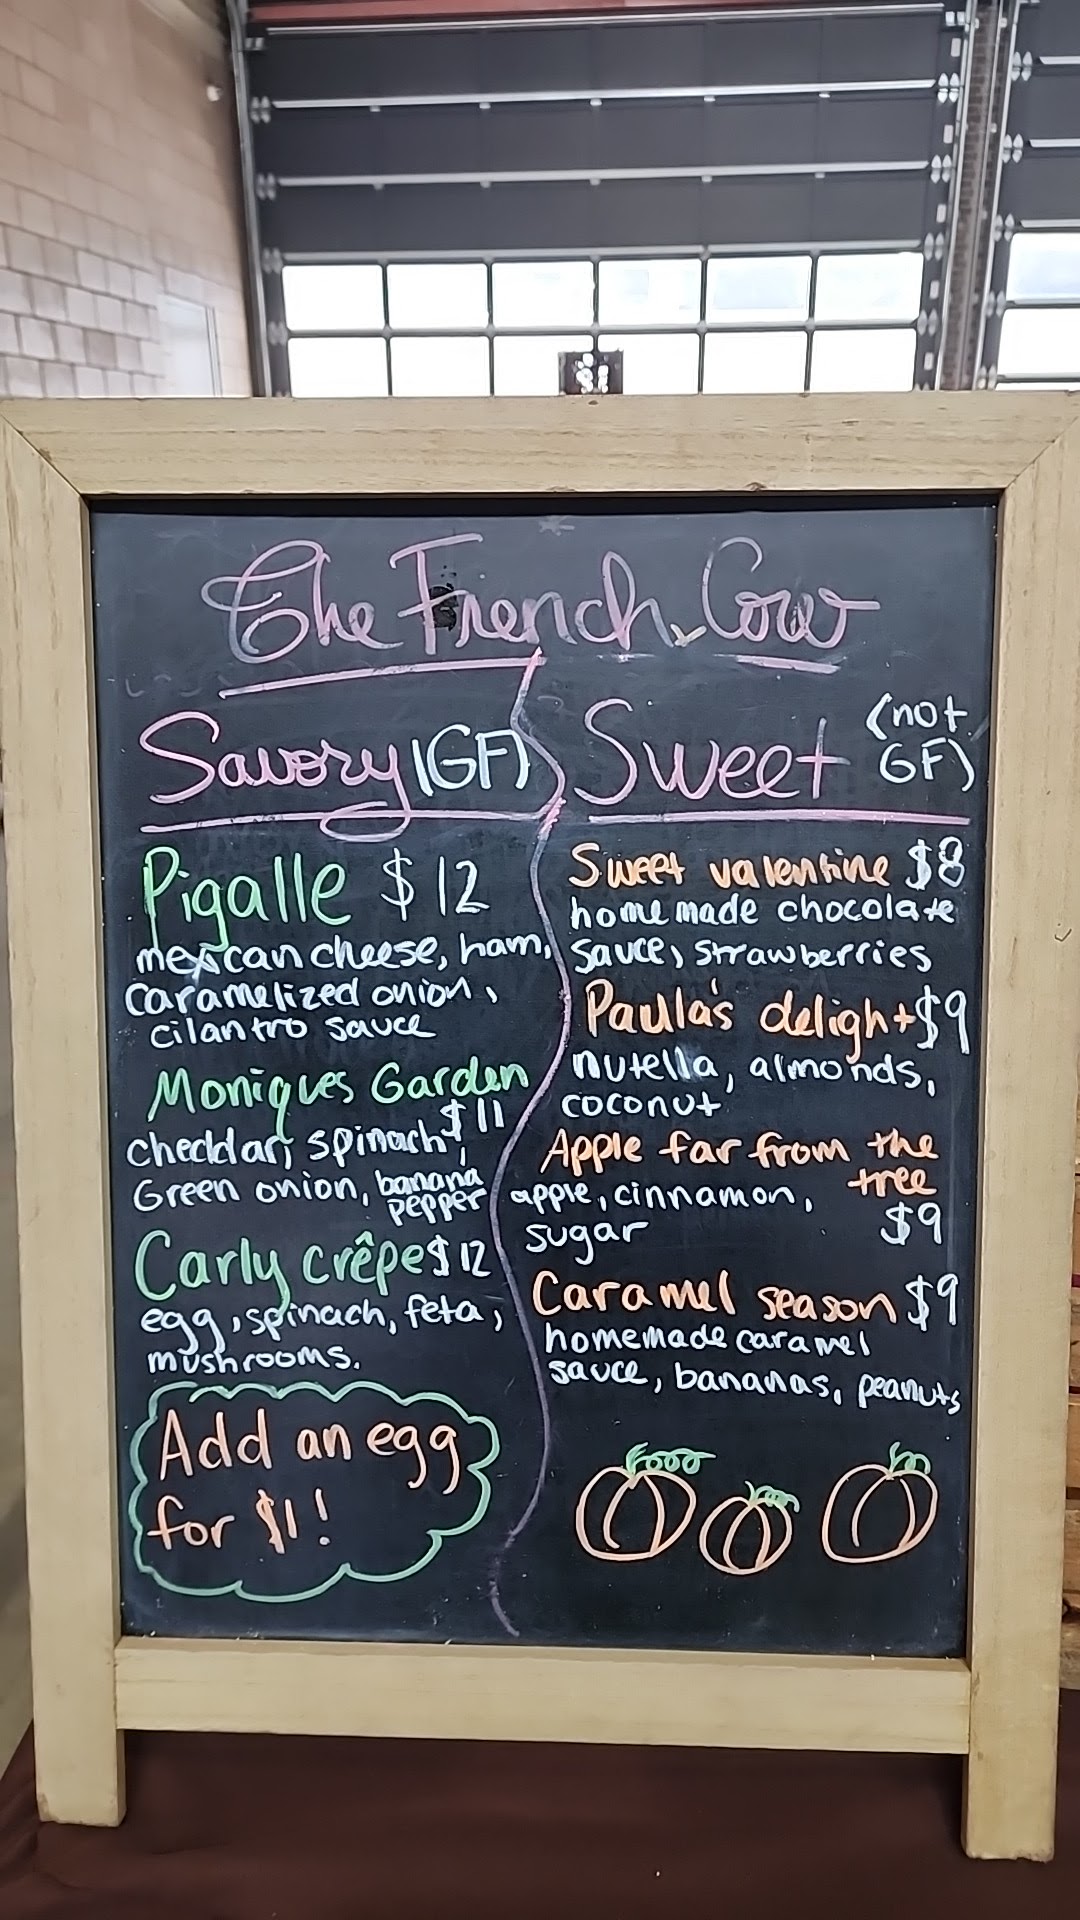 The French Cow
Savory (GF)
Pigalle $12
mexican cheese, ham,
caramelized onion,
cilantro sauce
Moniques Garden
$11
cheddar, spinach,
Green onion, banana
pepper
Carly crêpe $12
egg, spinach, feta,
mushrooms.
Add an egg
for $1!
Sweet (not
GF)
Sweet valentine $8
homemade chocolate
sauce, strawberries
Paulla's delight $9
nutella, almonds,
coconut
Apple far from the
tree
apple, cinnamon,
sugar $9
Caramel season $9
homemade caramel
sauce, bananas, peanuts